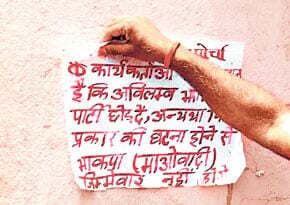 मोर्चा
के कार्यकर्ताओं
है कि अविलम्ब
पार्टी छोड़ दें, अन्यथा
प्रकार की घटना होने से
भाकपा (माओवादी)
जिम्मेवार नहीं होगी